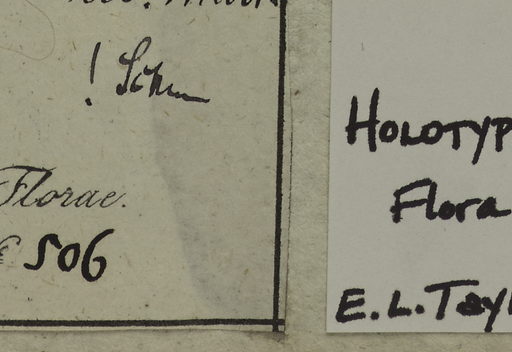 ! Schu
Florae.
506
HOLOTYP
Flora
E. L. Tayl